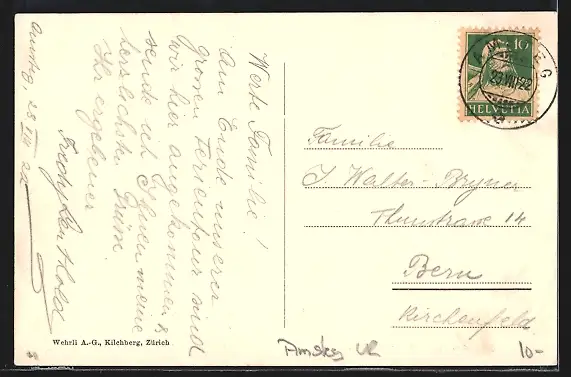 Amsteg, 28 VII 22
Werte Familie!
Am Ende unserer
grossen Ferientour sind
wir hier angekommen &
sende ich Ihnen meine
herzlichsten Grüsse.
Ihr ergebener
Berthold
Familie
J. Walter-Bryner
Thunstrasse 14
Bern
Kirchenfeld
10
HELVETIA
EG
VII 22
Wehrli A.-G., Kilchberg, Zürich
Amsteg UR
10-